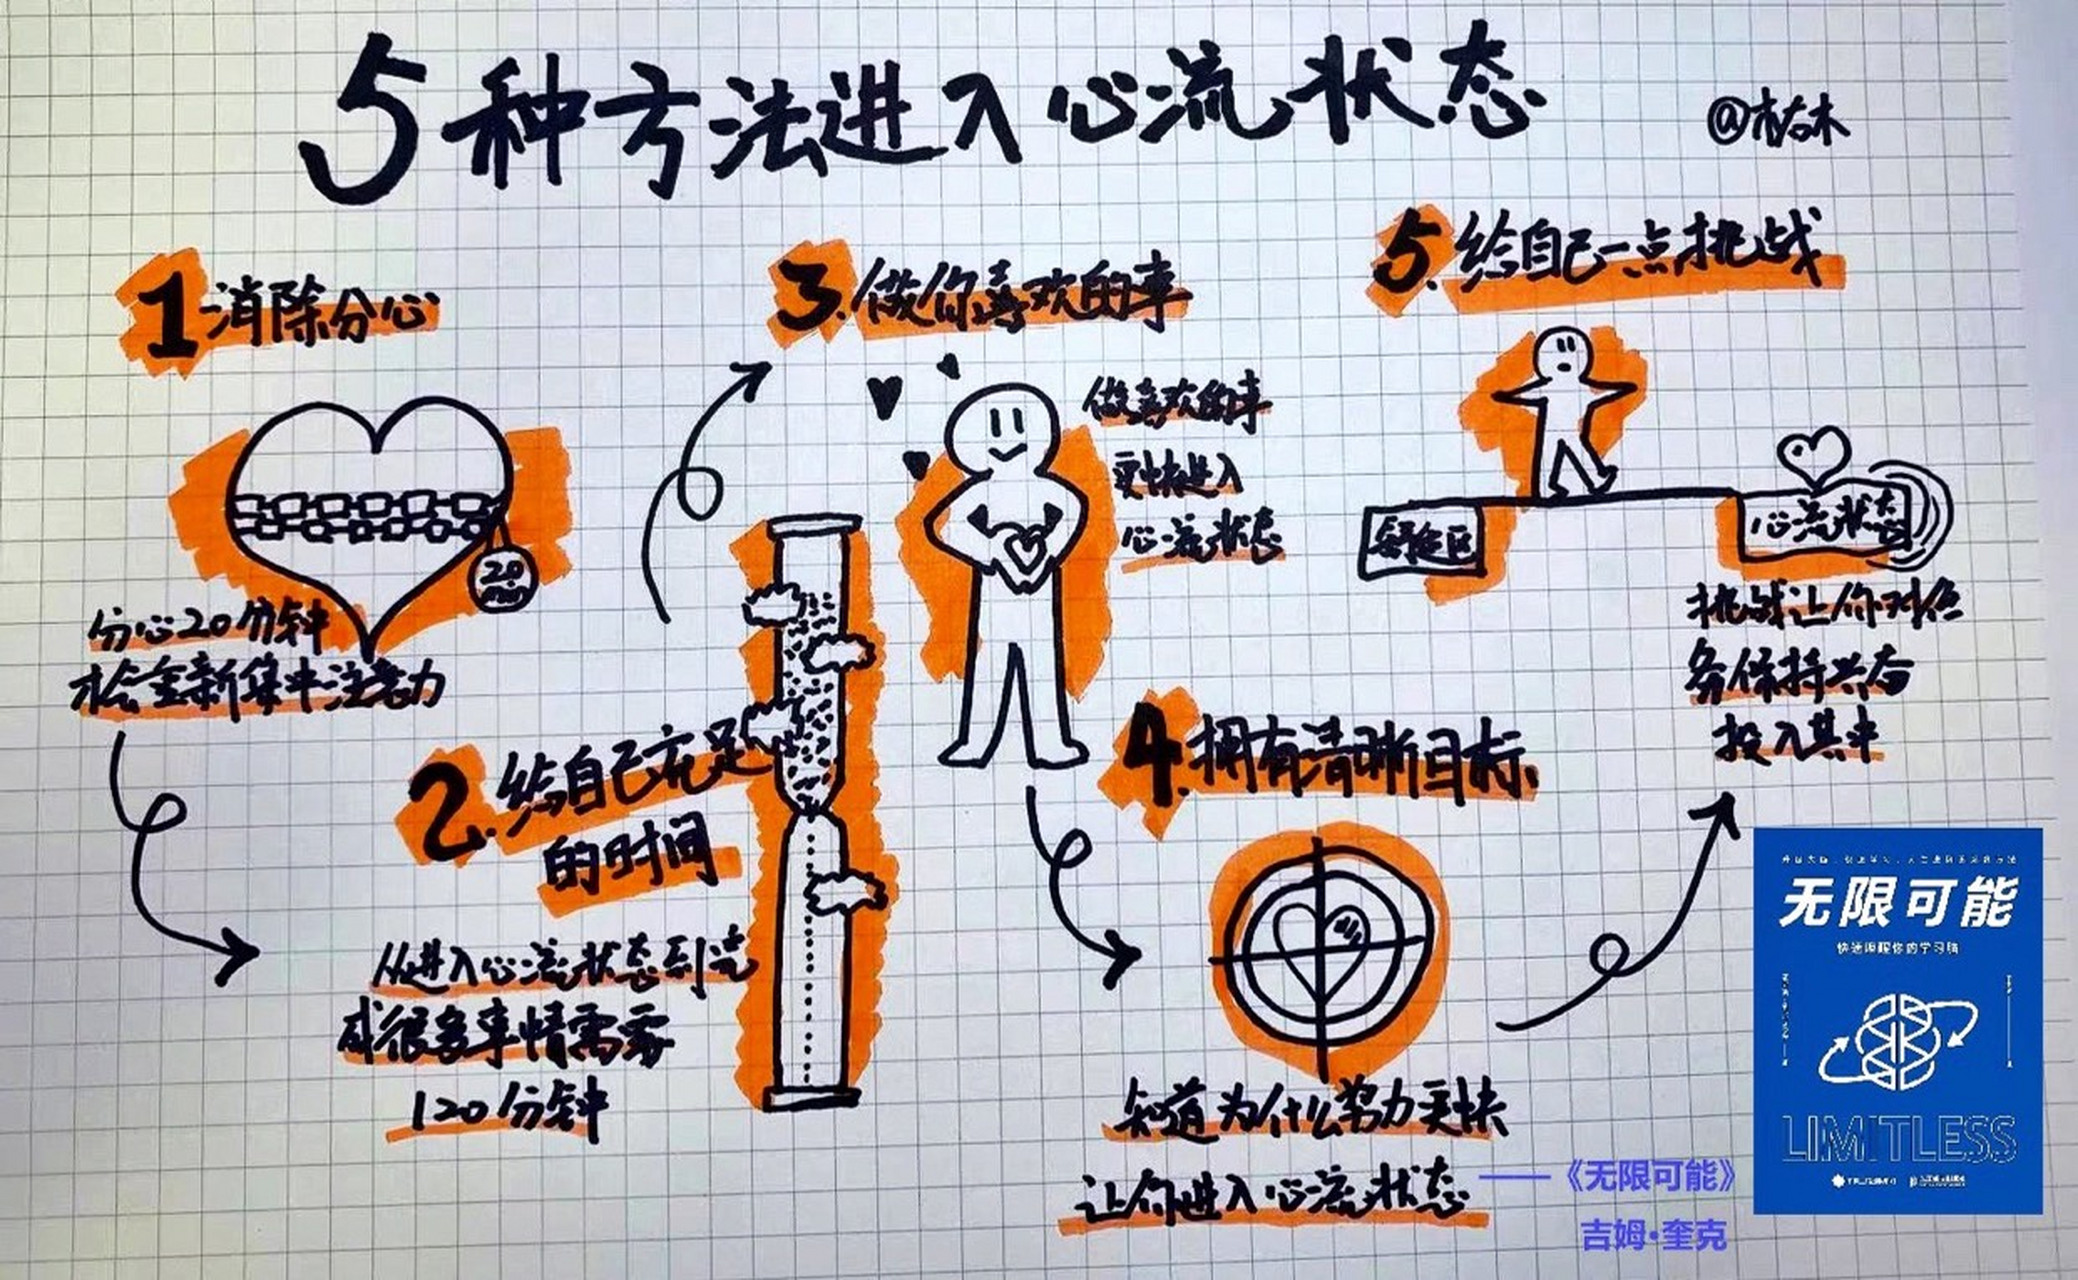 5种方法进入心流状态
@木右木
1消除分心
20
min
分心20分钟
才会重新集中注意力
2.给自己充足
的时间
从进入心流状态到完
成很多事情需要
120分钟
3.做你喜欢的事
做喜欢的事
更快进入
心流状态
4.拥有清晰目标
知道为什么努力更快
让你进入心流状态
5.给自己一点挑战
舒适区
心流状态
挑战让你对任
务保持兴奋
投入其中
无限可能
快速唤醒你的学习脑
LIMITLESS
——《无限可能》
吉姆·奎克